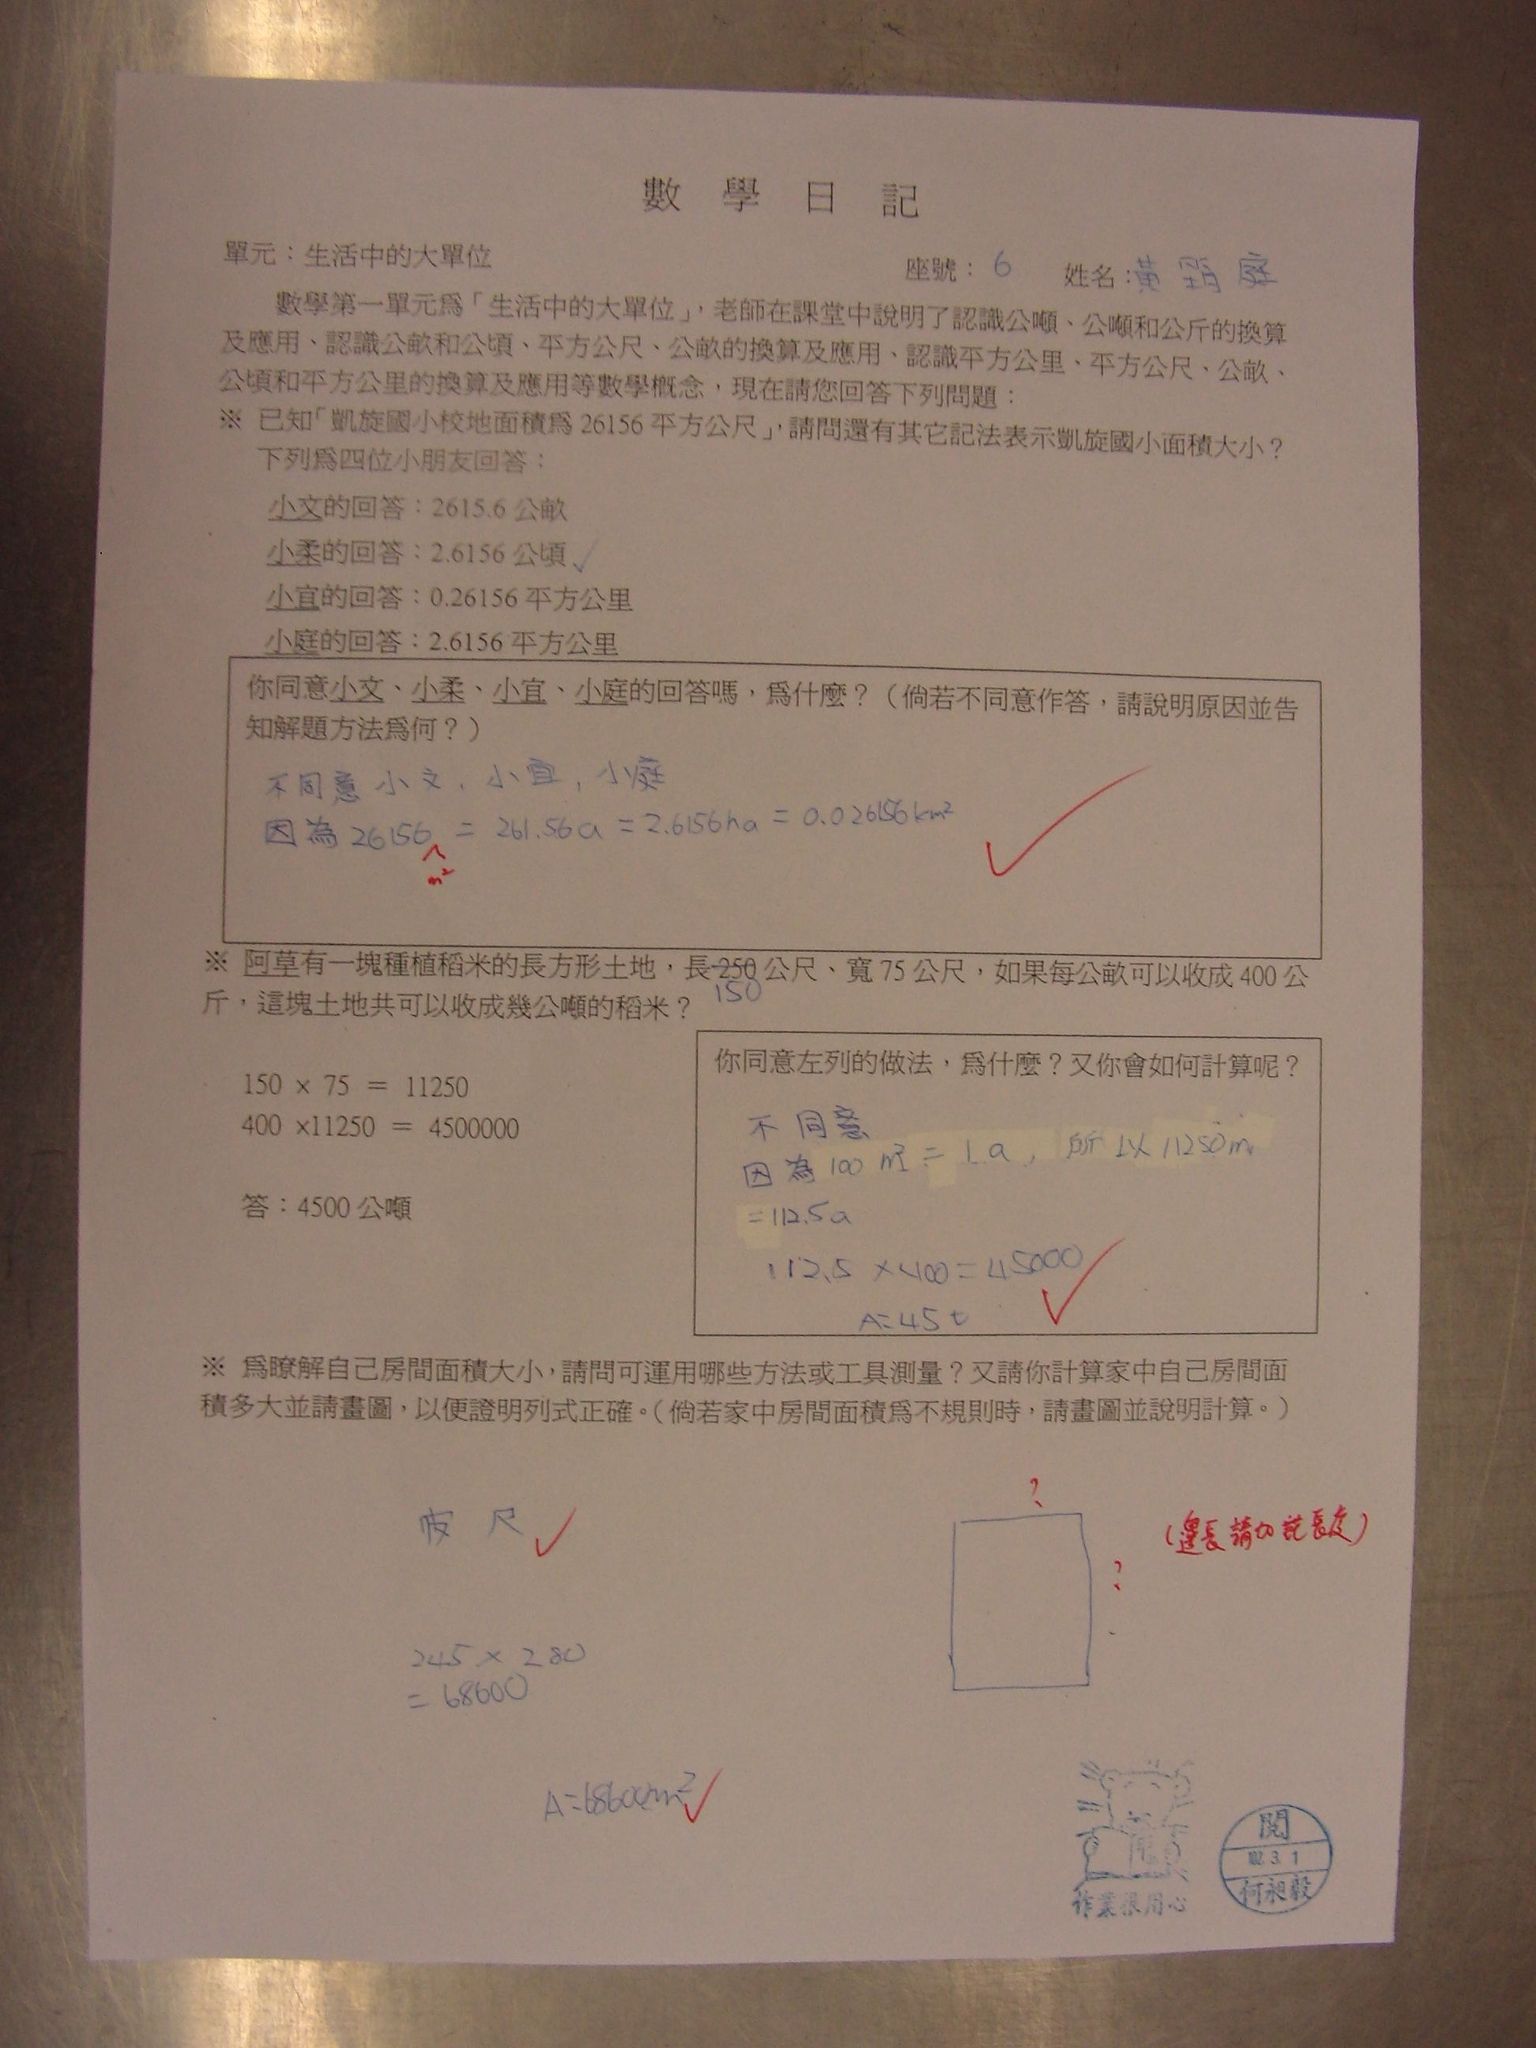 數學日記
單元：生活中的大單位
座號：6 姓名：黃 庭
數學第一單元為「生活中的大單位」，老師在課堂中說明了認識公噸、公噸和公斤的換算
及應用、認識公畝和公頃、平方公尺、公畝的換算及應用、認識平方公里、平方公尺、公畝、
公頃和平方公里的換算及應用等數學概念，現在請您回答下列問題：
※ 已知「凱旋國小校地面積為 26156 平方公尺」，請問還有其它記法表示凱旋國小面積大小？
下列為四位小朋友回答：
小文的回答：2615.6 公畝
小柔的回答：2.6156 公頃 ✓
小宜的回答：0.26156 平方公里
小庭的回答：2.6156 平方公里
你同意小文、小柔、小宜、小庭的回答嗎，為什麼？（倘若不同意作答，請說明原因並告
知解題方法為何？）
不同意 小文，小宜，小庭
因為 26156 = 261.56a = 2.6156ha = 0.026156km²
m²
※ 阿草有一塊種植稻米的長方形土地，長 250 公尺、寬 75 公尺，如果每公畝可以收成 400 公
150
斤，這塊土地共可以收成幾公噸的稻米？
150 × 75 = 11250
400 ×11250 = 4500000
答：4500 公噸
你同意左列的做法，為什麼？又你會如何計算呢？
不同意
因為 100 m² = 1a，所以 11250m²
=112.5a
112.5 ×400=45000
A=45t
※ 為瞭解自己房間面積大小，請問可運用哪些方法或工具測量？又請你計算家中自己房間面
積多大並請畫圖，以便證明列式正確。（倘若家中房間面積為不規則時，請畫圖並說明計算。）
皮尺
?
?
(邊長請加註長度)
245 × 280
= 68600
A=68600m²
作業很用心
閱
102. 3. 1
何昶毅